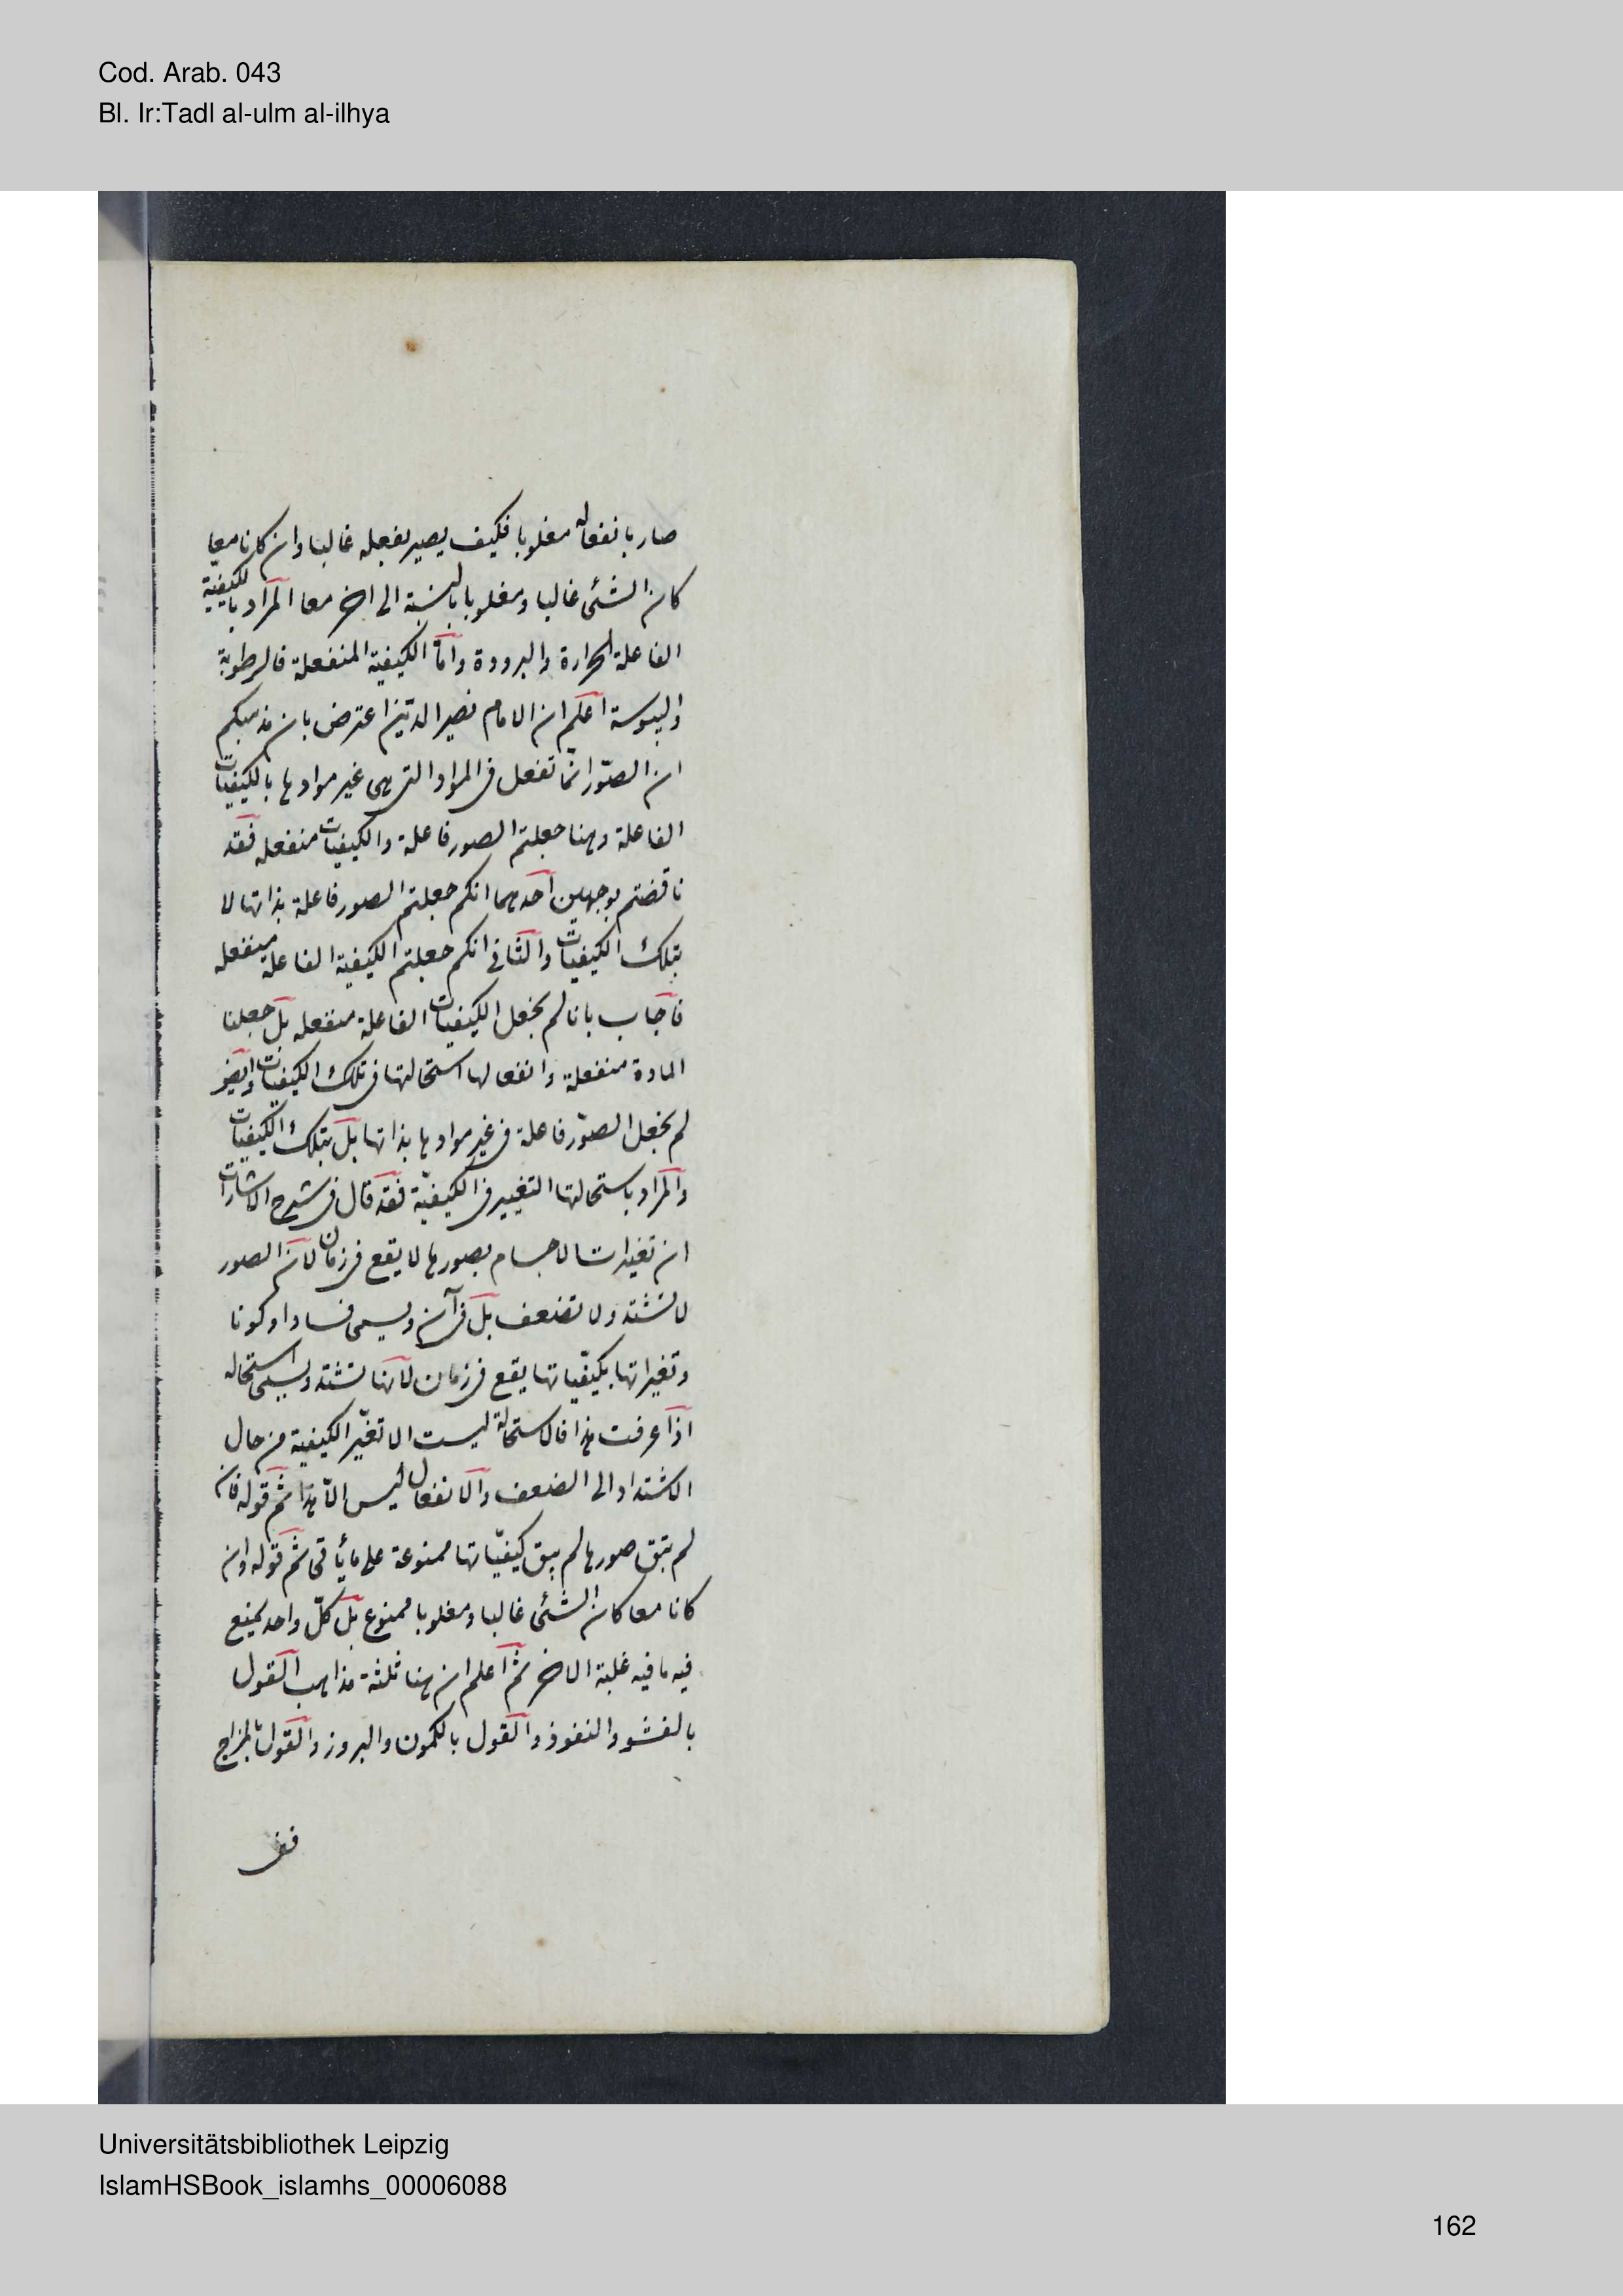 Cod. Arab. 043
Bl. Ir:Tadl al-ulm al-ilhya
صار بانفعاله مغلوبا فكيف يصير بفعله غالبا وان كانا معا
كان الشئ غالبا ومغلوبا بالنسبة الى اخر معا المراد بالكيفية
الفاعلة الحرارة والبرودة واما الكيفية المنفعلة فالرطوبة
واليبوسة اعلم ان الامام نصير الدين اعترض بان مذهبكم
ان الصور انما تفعل فى المواد التى هى غير موادها بالكيفيات
الفاعلة وهنا جعلتم الصور فاعلة والكيفيات منفعله فقد
ناقضتم بوجهين احدهما انكم جعلتم الصور فاعلة بذاتها لا
بتلك الكيفيات والثانى انكم جعلتم الكيفية الفاعلة منفعله
فاجاب بانا لم نجعل الكيفيات الفاعلة منفعله بل جعلنا
المادة منفعلة وانفعالها استحالتها فى تلك الكيفيات وايضا
لم نجعل الصور فاعلة فى غير موادها بذاتها بل بتلك الكيفيات
والمراد باستحالتها التغيير فى الكيفية فقد قال فى شرح الاشارات
ان تغيرات الاجسام بصورها لا يقع فى زمان لان الصور
لا تشتد ولا تضعف بل فى آن ويسمى فسادا وكونا
وتغيراتها بكيفياتها يقع فى زمان لانها تشتد ويسمى استحاله
اذا عرفت هذا فالاستحالة ليست الا تغير الكيفية من حال
الاشتداد الى الضعف والانفعال ليس الا هذا ثم قوله فان
لم تبق صورها لم يبق كيفياتها ممنوعة على ما يأتى ثم قوله وان
كانا معا كان الشئ غالبا ومغلوبا ممنوع بل كل واحد يمنع
فيه ما فيه غلبة الاخر ثم اعلم ان هنا ثلثة مذاهب القول
بالفشو والنفوذ والقول بالكمون والبروز والقول بالمزاج
Universitätsbibliothek Leipzig
IslamHSBook_islamhs_00006088
162